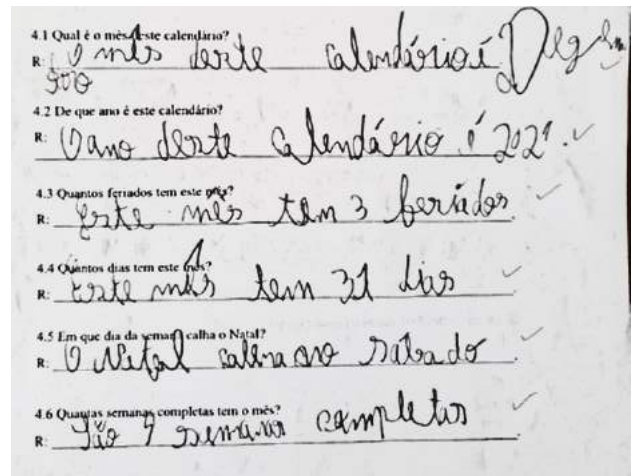 4.1 Qual é o mês deste calendário?
R: O mês deste calendárioé
4.2 De que ano é este calendário?
R: O ano deste calendário é 2021.
4.3 Quantos feriados tem este mês?
R: Este mês tem 3 feriados.
4.4 Quantos dias tem este mês?
R: Este mês tem 31 dias
4.5 Em que dia da semana calha o Natal?
R: O Natal calha ao sabado
4.6 Quantas semanas completas tem o mês?
R: São semanas completas